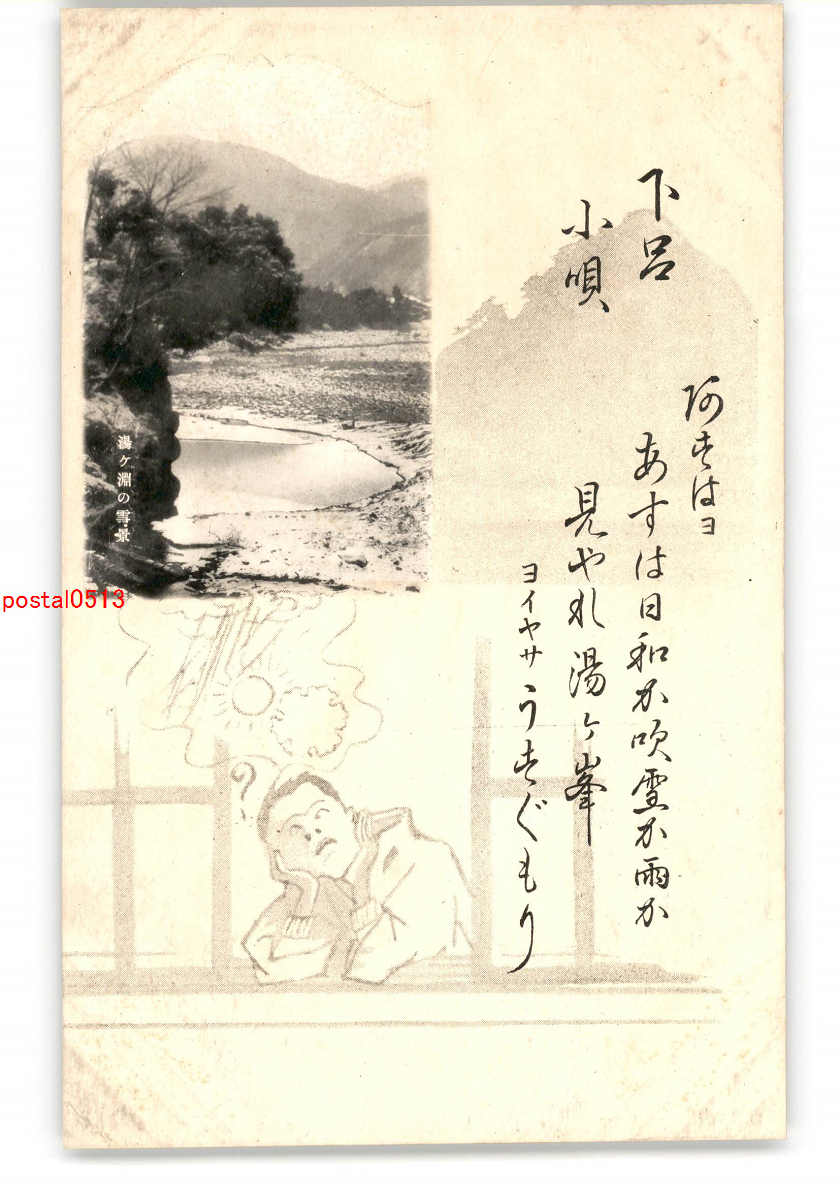 下呂
小唄
阿すはヨ
あすは日和か吹雪か雨か
見やれ湯ヶ峯
ヨイヤサ うすぐもり
湯ヶ淵の雪景
?
postal0513